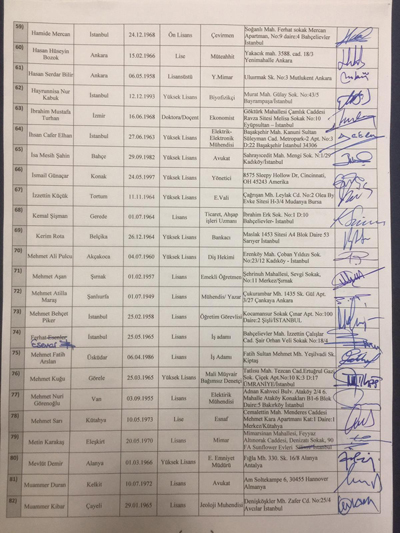 59) Hamide Mercan İstanbul 24.12.1968 Ön Lisans Çevirmen Soğanlı Mah. Ferhat sokak Mercan
Apartman, No:9 daire:4 Bahçelievler
İstanbul
60) Hasan Hüseyin Bozok Ankara 15.02.1966 Lise Müteahhit Yakacık mah. 3588. cad. 18/3
Yenimahalle Ankara
61) Hasan Serdar Bilir Ankara 06.05.1958 Lisansüstü Y.Mimar Uluırmak Sk. No:3 Mutlukent Ankara
62) Hayrunnisa Nur İstanbul 12.12.1993 Yüksek Lisans Biyofizikçi Murat Mah. Gülay Sok. No:43/5
Bayrampaşa/İstanbul
63) İbrahim Mustafa Turhan İzmir 16.06.1968 Doktora/Doçent Ekonomist Göktürk Mahallesi Çamlık Caddesi
Ravza Sitesi Melisa Sokak No:10
Eyüpsultan – İstanbul
64) İhsan Cafer Elban İstanbul 27.06.1963 Yüksek Lisans Elektrik-Elektronik Mühendisi Başakşehir Mah. Kanuni Sultan
Süleyman Cad. Metropark-2 Apt. No:3
D:22 Başakşehir İstanbul 34306
65) İsa Mesih Şahin Bahçe 29.09.1982 Yüksek Lisans Avukat Sahrayıcedit Mah. Mengi Sok. N:1/29
Kadıköy/İstanbul
66) İsmail Günaçar Konak 24.05.1997 Yüksek Lisans Yönetici 8575 Sleepy Hollow Dr, Cincinnati,
OH 45243 Amerika
67) İzzettin Küçük Tortum 11.11.1964 Yüksek Lisans E.Vali Çağrışan Mh. Leylak Cd. No:2 Oka By
Evke Sitesi H-3/4 Mudanya Bursa
68) Kemal Şişman Gerede 01.07.1964 Lisans Ticaret, Ahşap işleri Uzmanı İbrahim Erk Sok. No:1 D:10
Bahçelievler- İstanbul
69) Kerim Rota Belçika 26.12.1964 Yüksek Lisans Bankacı Maslak 1453 Sitesi A4 Blok Daire 53
Sarıyer İstanbul
70) Mehmet Ali Pulcu Akçakoca 04.07.1960 Yüksek Lisans Diş Hekimi Erenköy Mah. Çoban Yıldızı Sok.
No:23/12 Kadıköy - İstanbul
71) Mehmet Aşan Şırnak 01.02.1957 Lisans Emekli Öğretmen Şehrinuh Mahallesi, Sevgi Sokak,
No:11 Merkez/Şırnak
72) Mehmet Atilla Maraş Şanlıurfa 01.07.1949 Lisans Mühendis/ Yazar Çukurambar Mh. 1435 Sk. Gül Apt.
3/27 Çankaya Ankara
73) Mehmet Behçet Piker İstanbul 25.02.1958 Lisans Öğretim Görevlisi Kocamansur Sokak Çınar Apt. No:100
Daire:2 Şişli/İSTANBUL
74) İstanbul 25.05.1965 Lisans İş adamı Bahçelievler Mah. İzzettin Çalışlar
Cad. Şair Orhan Veli Sokak No:18/4
75) Mehmet Fatih Arslan Üsküdar 06.04.1986 Lisans İş Adamı Fatih Sultan Mehmet Mh. Yeşilvadi Sk.
Kiptaş
76) Mehmet Kuğu Görele 25.03.1965 Yüksek Lisans Mali Müşavir Bağımsız Denetçi Tatlısu Mah. Tezcan Cad.Ertuğrul Gazi
Sok. Çiçek Apt.No:10 K:3 D:17
ÜMRANİYE/İstanbul
77) Mehmet Nuri Gitmenoğlu Van 03.09.1955 Lisans Elektirik Mühendisi Adnan Kahveci Bulv. Ataköy 2/4 6.
Mahalle Ataköy Konakları B1-6 Blok
Daire:5 Bakırköy İstanbul
78) Mehmet Sarı Kütahya 10.05.1973 Lise Esnaf Cemalettin Mah. Menderes Caddesi
Mehmet Kara Apartmanı Kat:1 Daire:1
Merkez/Kütahya
79) Metin Karakaş Eleşkirt 20.05.1970 Lisans Mimar Mimarsinan Mahallesi, Feyyaz
Ahmorak Caddesi, Denizatı Sokak, 90
FA Sunflower Evleri
80) Mevlüt Demir Alanya 01.03.1966 Yüksek Lisans E. Emniyet Müdürü Fığla Mh. 330. Sk. 16/8 Alanya
Antalya
81) Muammer Duran Kelkit 10.07.1972 Lisans Avukat Am Soltekampe 6, 30455 Hannover
Almanya
82) Muammer Kibar Çayeli 29.01.1965 Lisans Jeoloji Mühendisi Denizköşkler Mh. Zafer Cd. No:25/4
Avcılar İstanbul